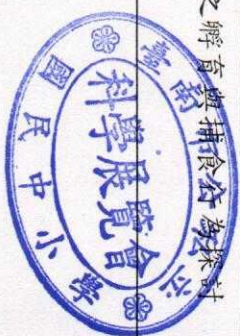 之孵育與捕食行為探討
臺南
科學展覽會
國民中小學